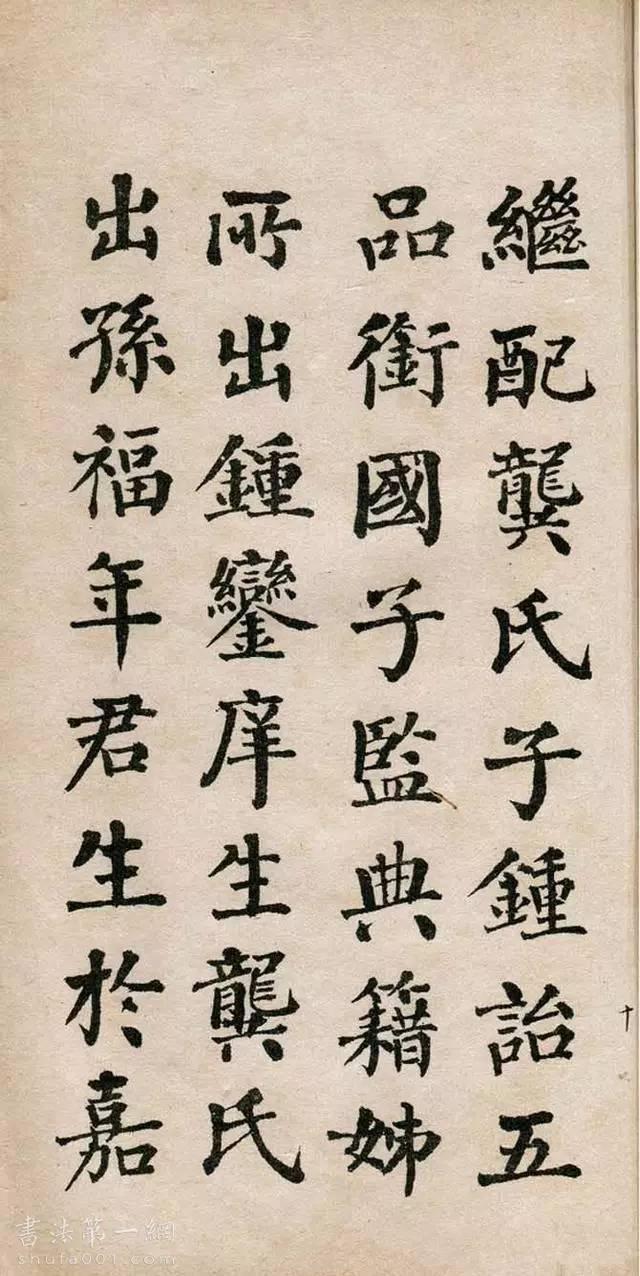 繼配龔氏子鍾詒五
品銜國子監典籍姊
所出鍾鑾庠生龔氏
出孫福年君生於嘉
十
書法第一網
shufa001.com